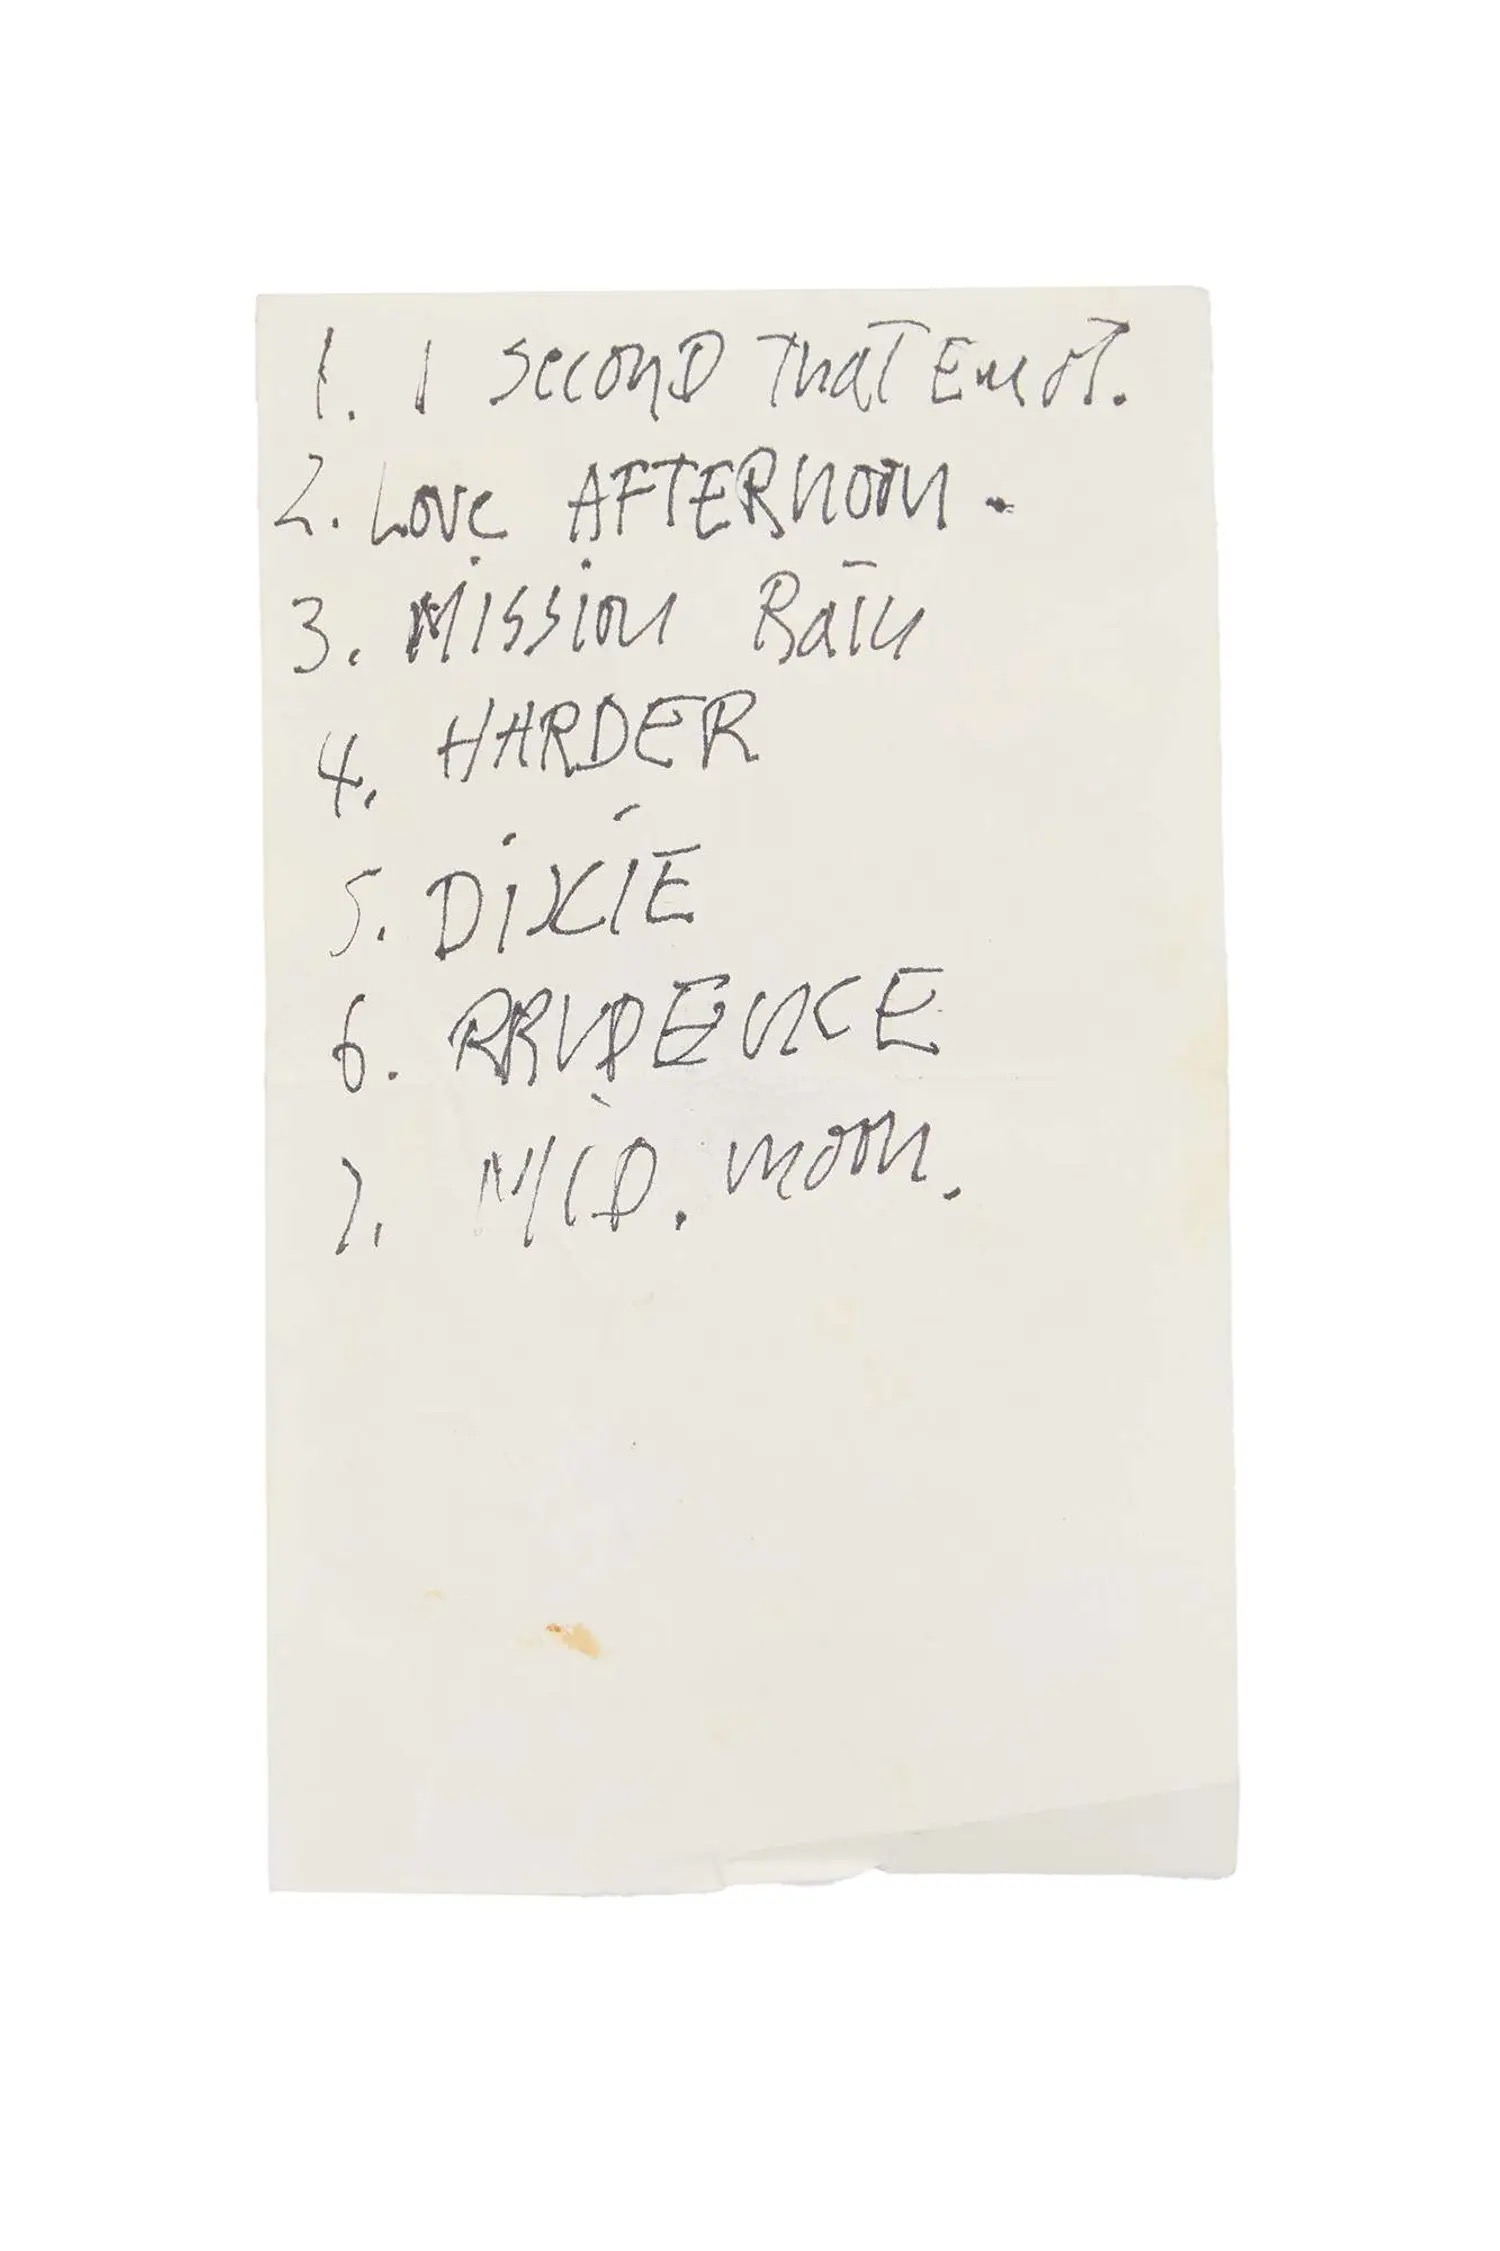 1. I Second That Emot.
2. Love AFTERnoon.
3. Mission Rain
4. HARDER
5. DiXIE
6. PRUDENCE
7. MID. moon.